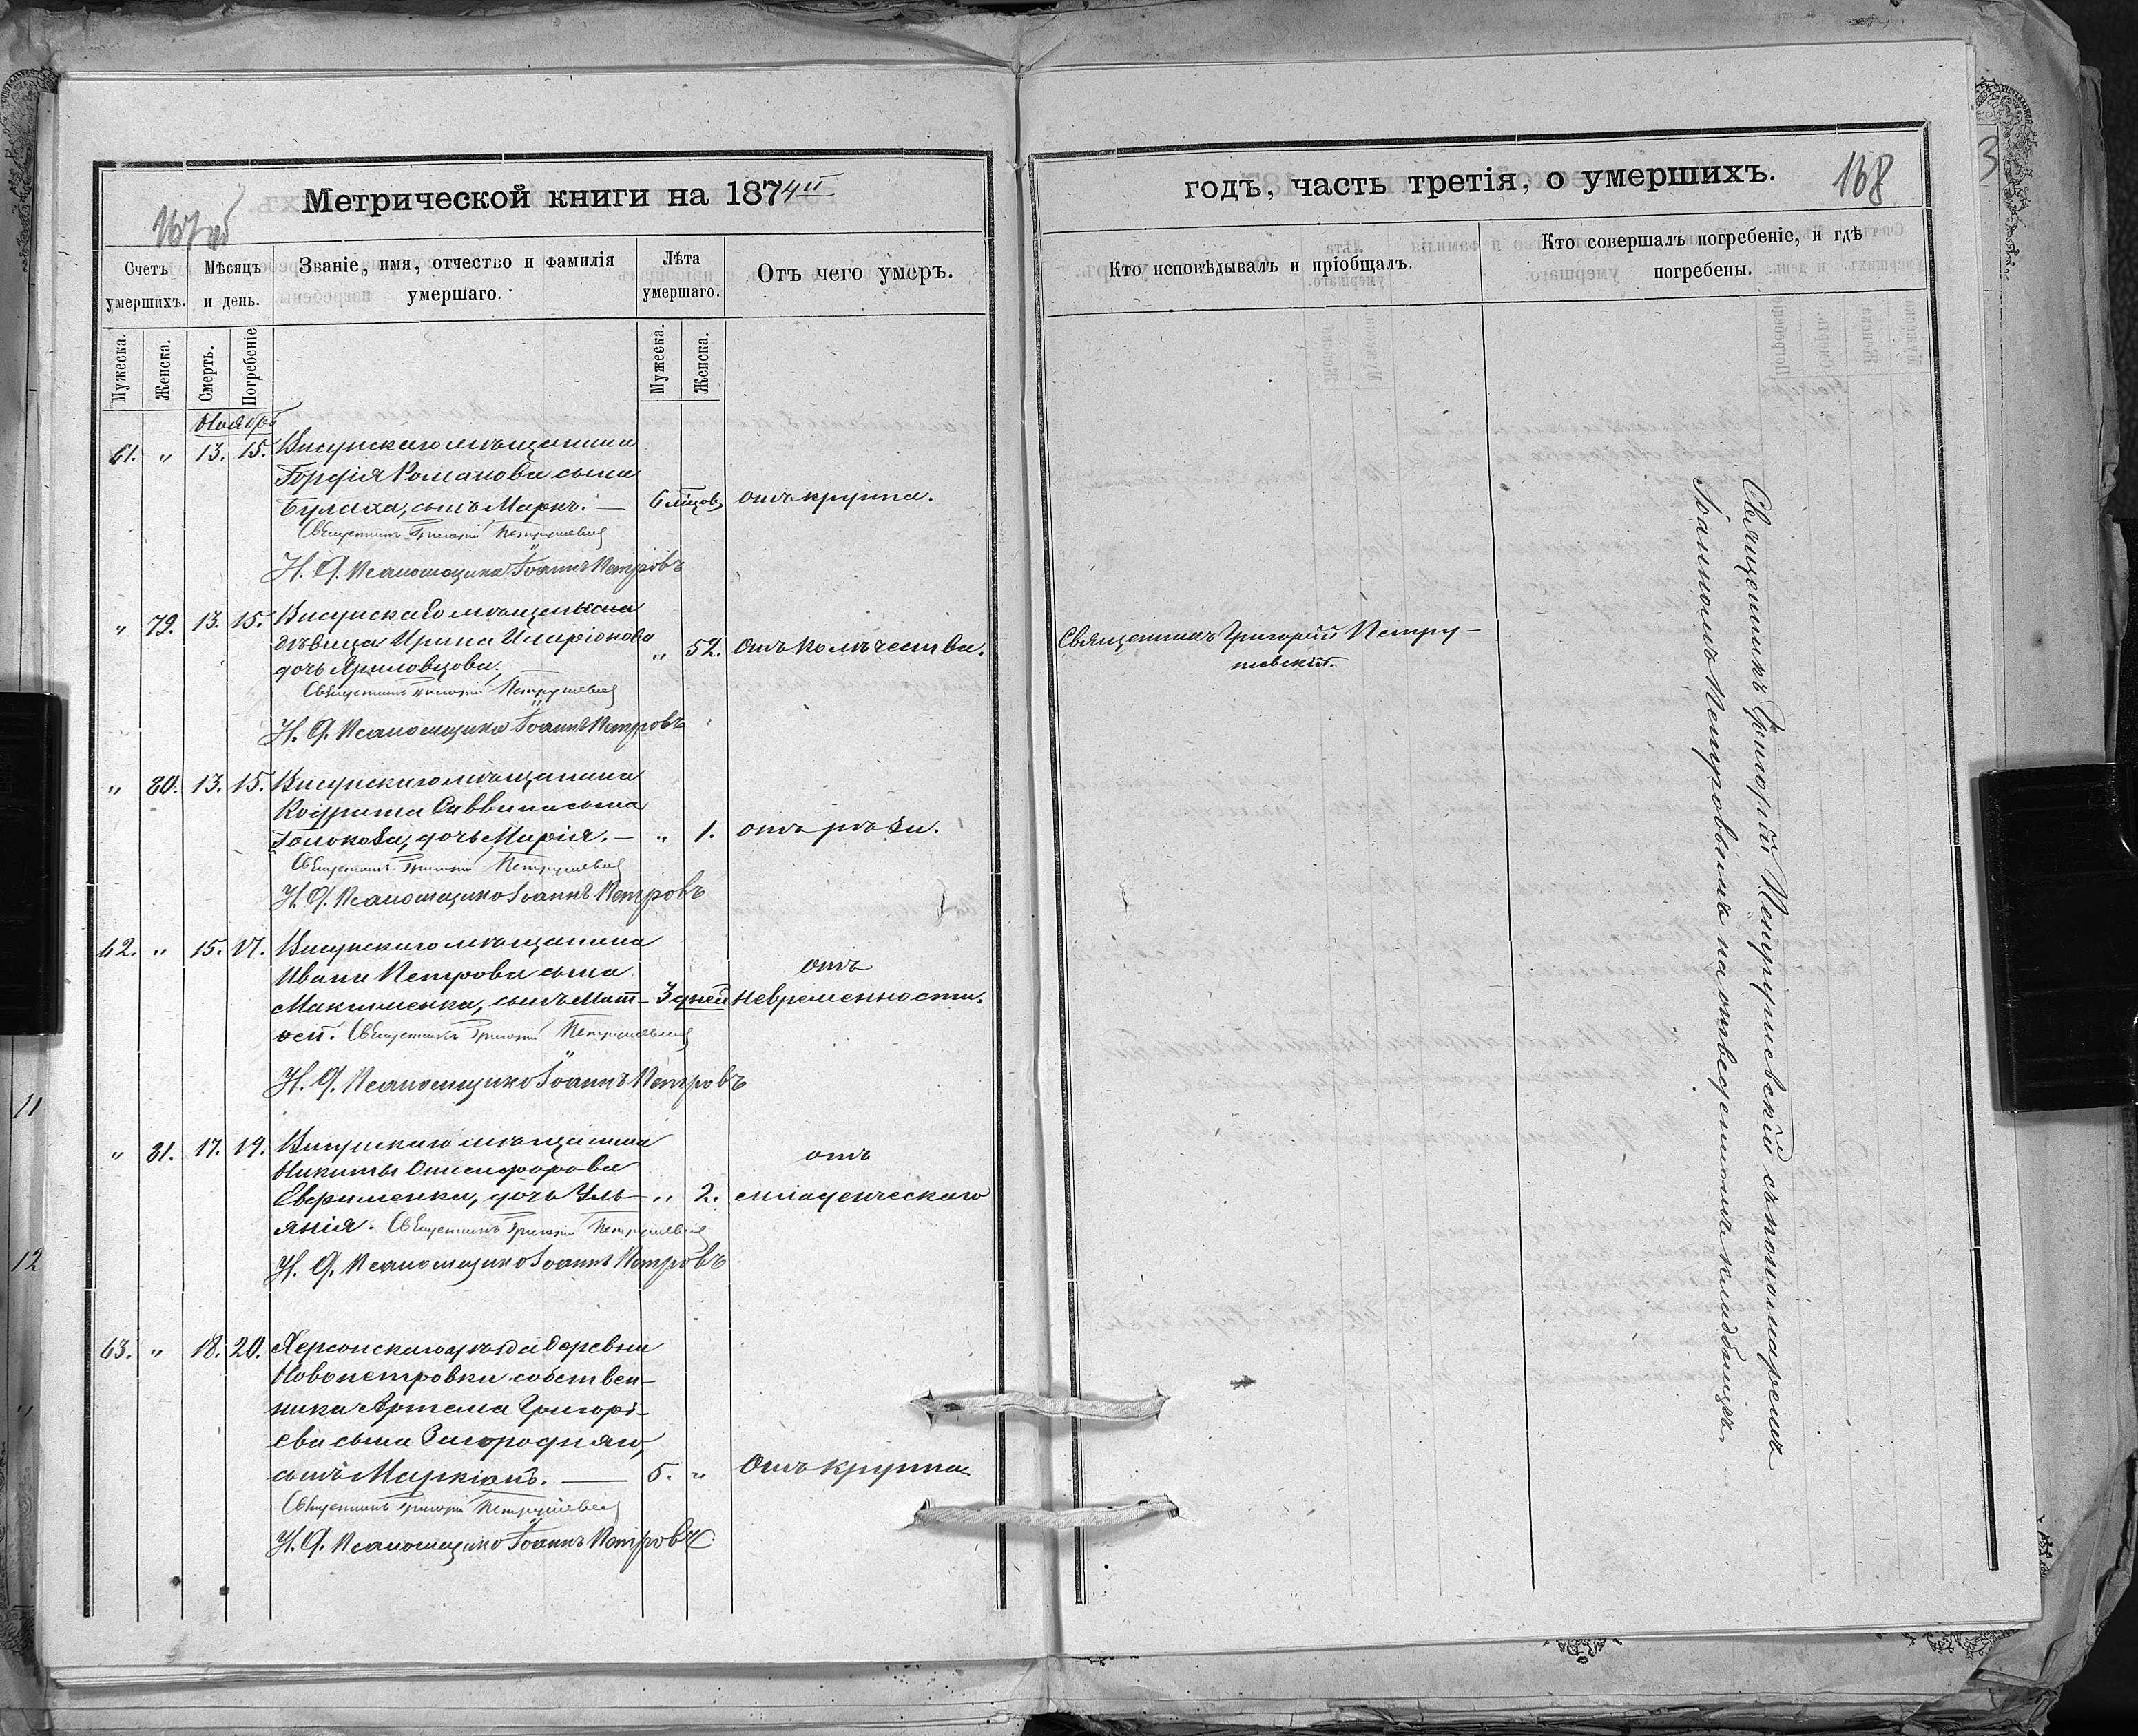 Метрической книги на 1874й
167 об
Счетъ умершихъ.
Мѣсяцъ и день.
Званіе, имя, отчество и фамилія умершаго.
Лѣта умершаго.
Отъ чего умеръ.
Мужеска.
Женска.
Смерть.
Погребеніе
Мужеска.
Женска.
Ноябрь
61. " 13. 15. Висунскаго мѣщанина
Романова сына
Булаха, сынъ Маркъ. — 6 мѣцовъ отъ крупа.
Священникъ Григорій Петрушевскій
И. Д. Псаломщика Іоаннъ Петровъ
" 79. 13. 15. Висунскаго
вдовица Ирина Иларіонова
дочь " 52.
Священникъ Григорій Петрушевскій
И. Д. Псаломщика Іоаннъ Петровъ
" 80. 13. 15. Висунскаго мѣщанина
Кондрата Саввина сына
Голокова, дочь Марія. — " 1. отъ рѣзи.
Священникъ Григорій Петрушевскій
И. Д. Псаломщика Іоаннъ Петровъ
62. " 15. 17. Висунскаго мѣщанина
Ивана Петрова сына отъ
Максименка, сынъ Мат- 3 дней невременности.
ѳей. Священникъ Григорій Петрушевскій
И. Д. Псаломщика Іоаннъ Петровъ
" 81. 17. 19. Висунскаго мѣщанина
Никиты Онисифорова отъ
дочь Уль- " 2. младенческаго
янія. Священникъ Григорій Петрушевскій
И. Д. Псаломщика Іоаннъ Петровъ
63. " 18. 20. Херсонскаго уѣзда деревни
Новопетровки собствен-
ника Артема Григорі-
ева сына Загородняго,
сынъ Маркіанъ. — 5. " Отъ крупа
Священникъ Григорій Петрушевскій
И. Д. Псаломщика Іоаннъ Петровъ
годъ, часть третія, о умершихъ.
168
Кто исповѣдывалъ и пріобщалъ.
Кто совершалъ погребеніе, и гдѣ погребены.
Священникъ Григорій Петру-
шевскій.
Священникъ Григорій Петрушевскій съ пономаремъ
Іоанномъ Петровымъ на отведенномъ кладбищѣ.
3
11
12